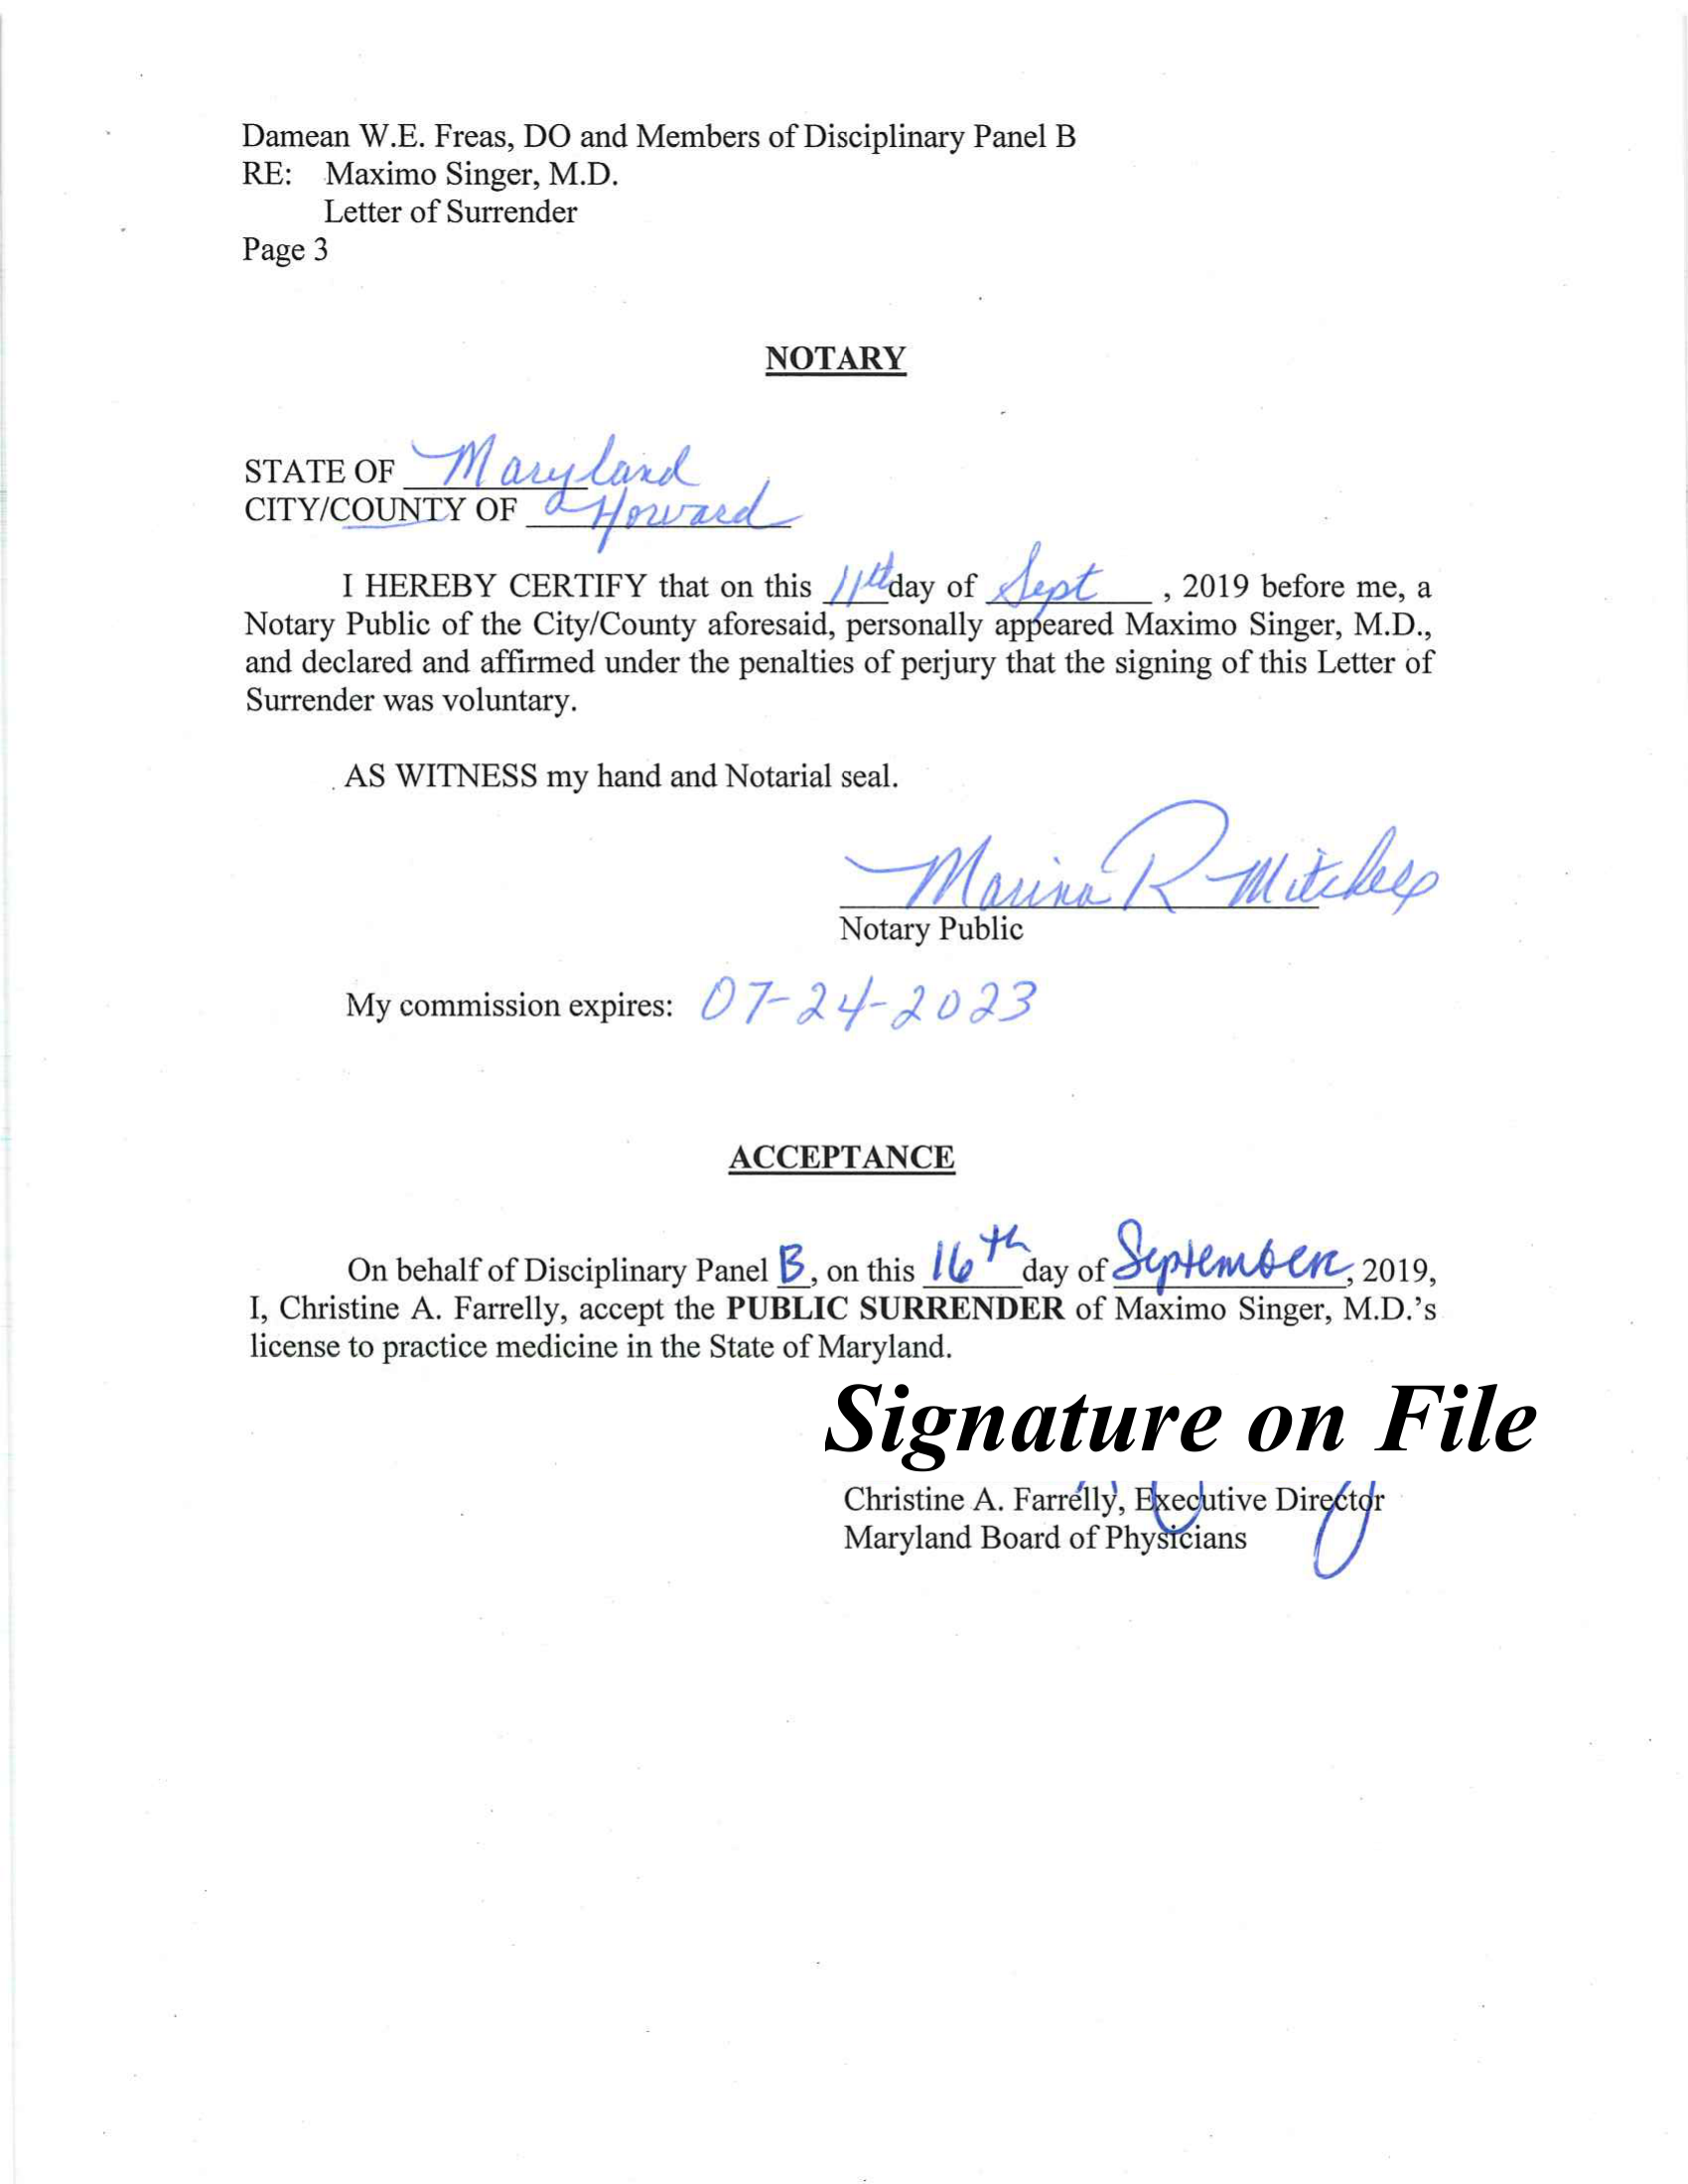 Damean W.E. Freas, DO and Members of Disciplinary Panel B
RE: Maximo Singer, M.D.
Letter of Surrender
Page 3
NOTARY
STATE OF Maryland
CITY/COUNTY OF Howard
I HEREBY CERTIFY that on this 11th day of Sept, 2019 before me, a
Notary Public of the City/County aforesaid, personally appeared Maximo Singer, M.D.,
and declared and affirmed under the penalties of perjury that the signing of this Letter of
Surrender was voluntary.
AS WITNESS my hand and Notarial seal.
Marina R Mitchell
Notary Public
My commission expires: 07-24-2023
ACCEPTANCE
On behalf of Disciplinary Panel B, on this 16th day of September, 2019,
I, Christine A. Farrelly, accept the PUBLIC SURRENDER of Maximo Singer, M.D.'s
license to practice medicine in the State of Maryland.
Signature on File
Christine A. Farrelly, Executive Director
Maryland Board of Physicians